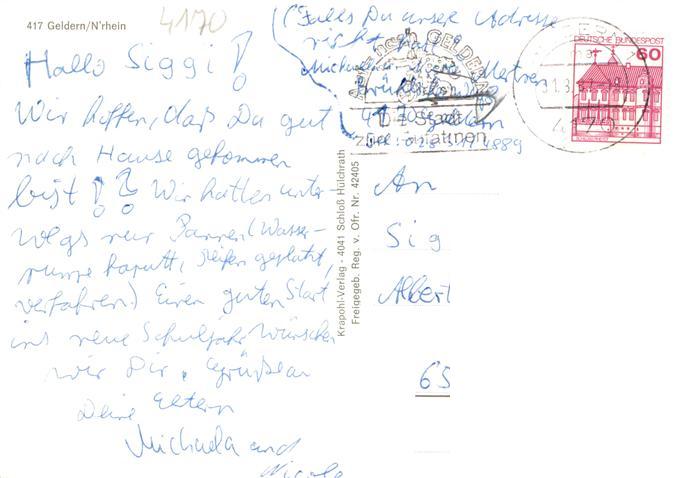 417 Geldern/N'rhein
4170
Hallo Siggi!
Wir hoffen, daß Du gut
nach Hause gekommen
bist!? Wir hatten unter-
wegs nur Pannen (Wasser-
kaputt, Reifen geplatzt,
verfahren) Einen guten Start
ins neue Schuljahr wünschen
wir Dir. Grüße an
Deine Eltern
Michaela und
Nicole
(Falls Du unsere Adresse
nicht hast
Michaela
Geldern
GELDERN
Die Stadt
zum
DEUTSCHE BUNDESPOST
60
4170
An
Sig
Albert
65
Krapohl-Verlag - 4041 Schloß Hülchrath
Freigegeb. Reg. v. Ofr. Nr. 42405